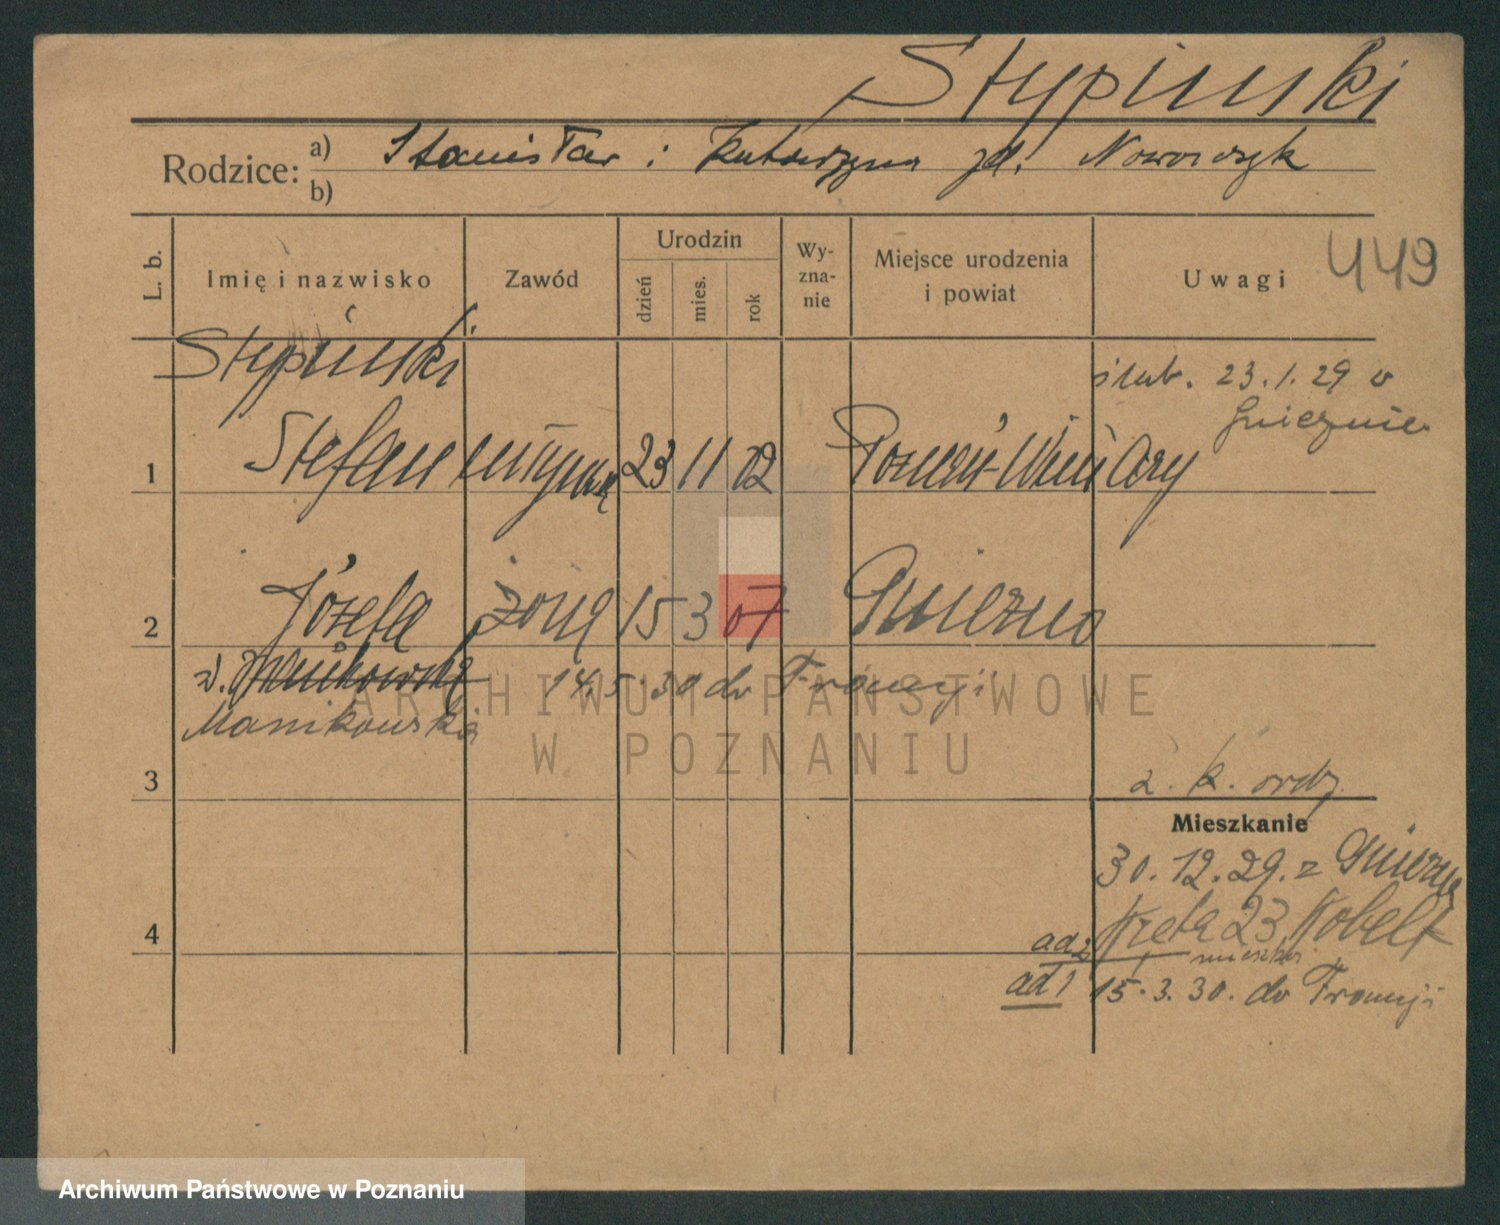 Stypiński
Rodzice: a) Stanisław i Katarzyna zd. Nowowszyk
b)
L. b. Imię i nazwisko Zawód Urodzin dzień mies. rok Wy-zna-nie Miejsce urodzenia i powiat Uwagi 449
Stypiński
ślub. 23.1.29 w
Gnieźnie
1 Stefan 23 11 02 Poznań-Winiary
2 Józefa żona 15 3 07 Gniezno
z. Manikowska 14.5.30 do Francji
Manikowska
3
Mieszkanie
30.12.29. z Gniezna
4 23
ad 2
ad 1 15.3.30. do Francji
ARCHIWUM PAŃSTWOWE
W POZNANIU
Archiwum Państwowe w Poznaniu